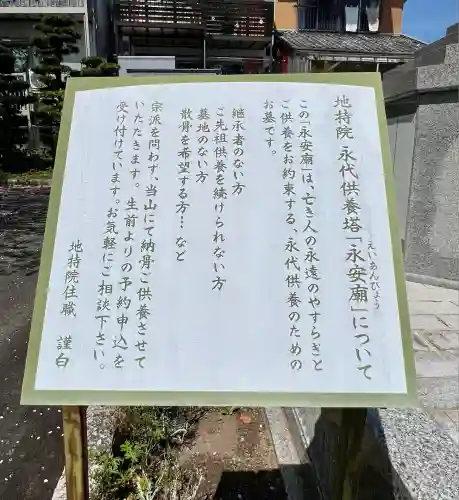 地持院 永代供養塔「永安廟」について
えいあんびょう
この「永安廟」は、亡き人の永遠のやすらぎと
ご供養をお約束する、永代供養のための
お墓です。
継承者のない方
ご先祖供養を続けられない方
墓地のない方
散骨を希望する方…など
宗派を問わず、当山にて納骨ご供養させて
いただきます。生前よりの予約申込を
受け付けています。お気軽にご相談下さい。
地持院住職 謹白